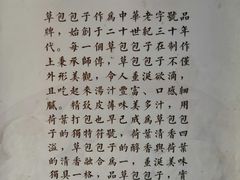 草包包子作為中華老字號品
牌，始創于二十世紀三十年
代。每一個草包包子在制作
上秉承師傳，草包包子不僅
外形美觀，令人垂涎欲滴，
且吃起來湯汁豐富、口感細
膩。精致皮薄味美多汁，用
荷葉打包早已成爲草包包
子的獨特符號，荷葉清香四
溢，草包包子的香與荷葉
的清香融合爲一，包子美味
獨具一格，品草包包子，實